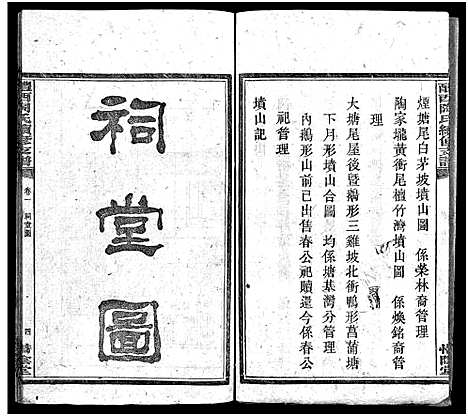 醴西陶氏續修支譜
煙塘尾白茅坡墳山圖　係榮林裔管理
陶家壠黃衝尾檀竹灣墳山圖　係煥銘裔管
理
大塘尾屋後暨鵝形三雞坡北衝鴨形菖蒲塘
下月形墳山合圖　均係塘基灣分管理
內鵝形山前已出售春公祀贖還今係春公
祀管理
墳山記
祠堂圖
醴西陶氏續修支譜
卷一　祠堂圖
四
惜陰堂